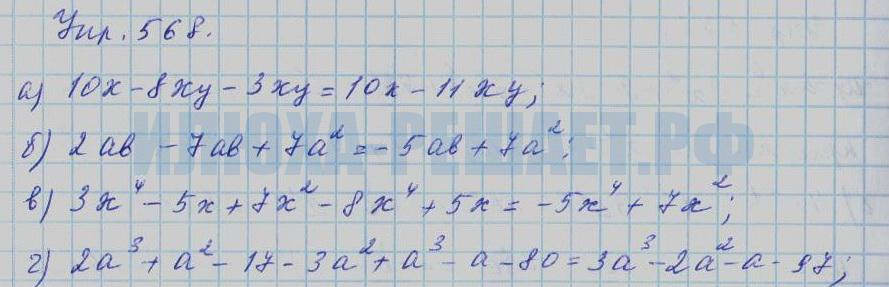 Упр. 568.
а) 10x - 8xy - 3xy = 10x - 11xy;
б) 2ab - 7ab + 7a² = - 5ab + 7a²;
в) 3x⁴ - 5x + 7x² - 8x⁴ + 5x = -5x⁴ + 7x²;
г) 2a³ + a² - 17 - 3a² + a³ - a - 80 = 3a³ - 2a² - a - 97;
ИЛЮХА-РЕШАЕТ.РФ